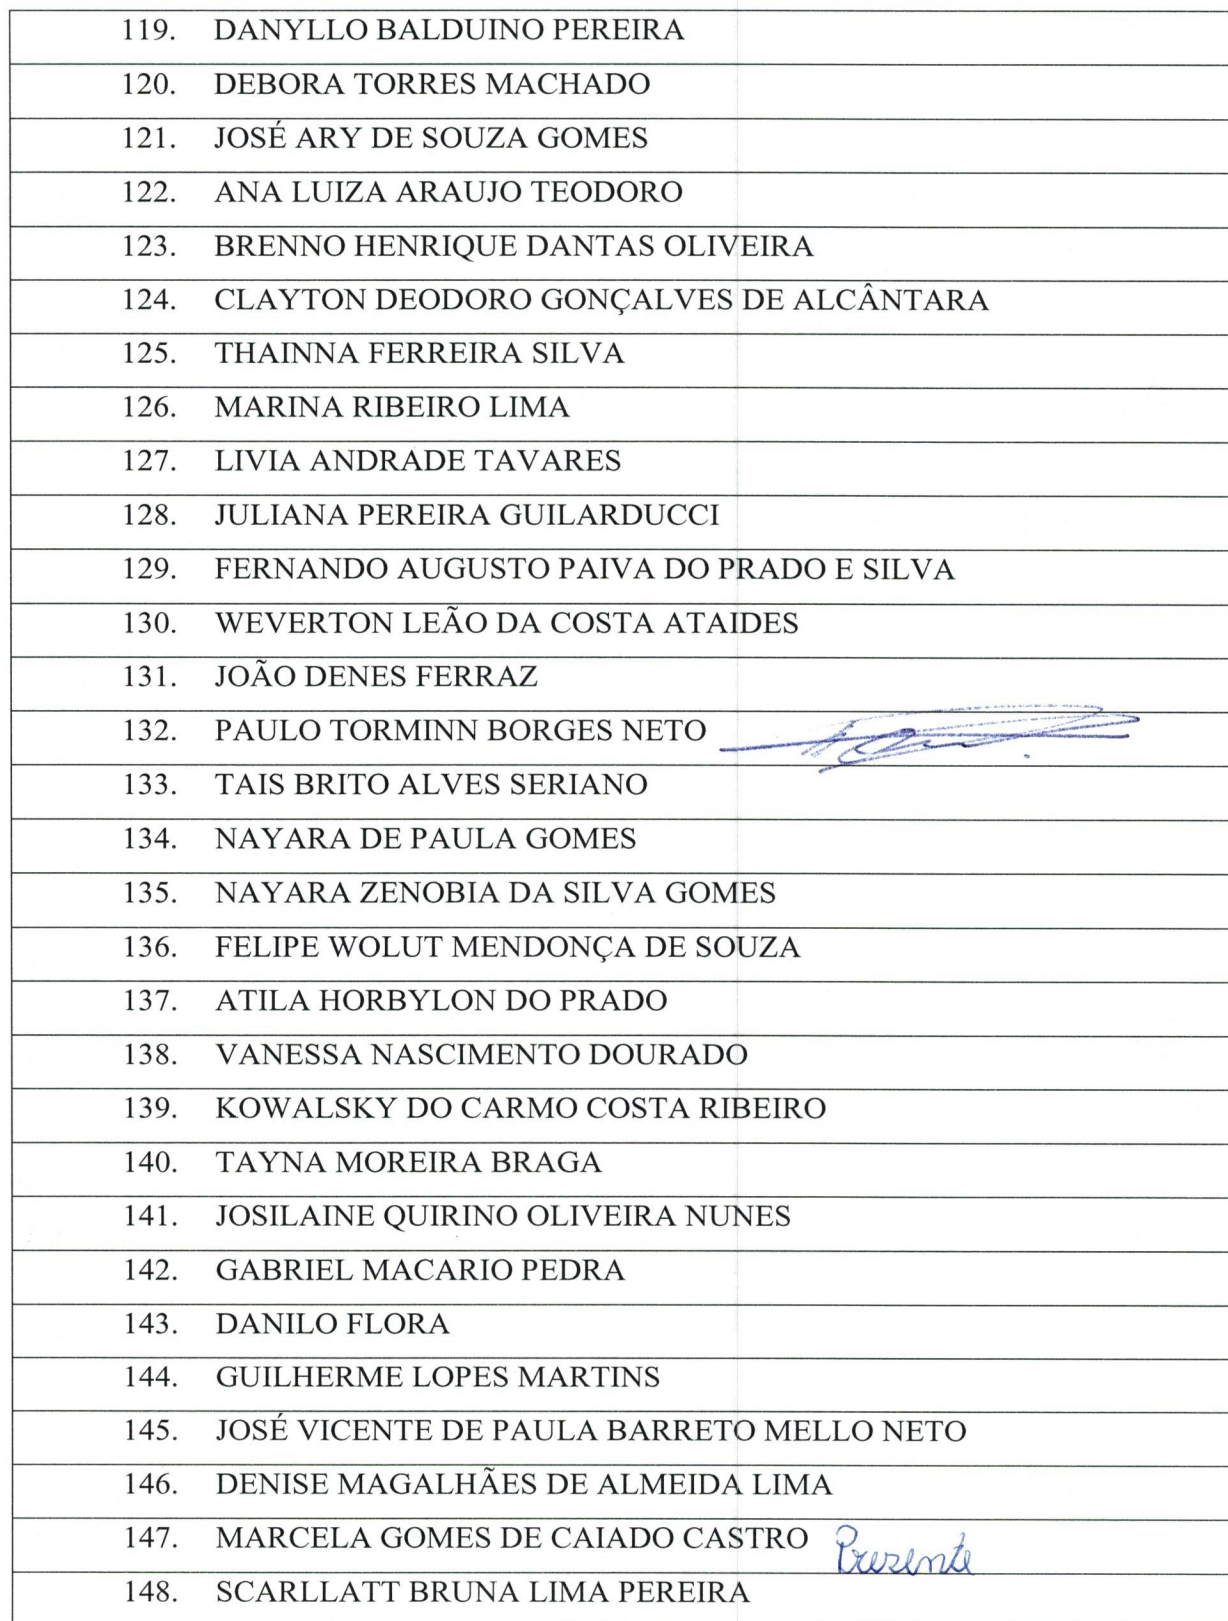 119. DANYLLO BALDUINO PEREIRA
120. DEBORA TORRES MACHADO
121. JOSÉ ARY DE SOUZA GOMES
122. ANA LUIZA ARAUJO TEODORO
123. BRENNO HENRIQUE DANTAS OLIVEIRA
124. CLAYTON DEODORO GONÇALVES DE ALCÂNTARA
125. THAINNA FERREIRA SILVA
126. MARINA RIBEIRO LIMA
127. LIVIA ANDRADE TAVARES
128. JULIANA PEREIRA GUILARDUCCI
129. FERNANDO AUGUSTO PAIVA DO PRADO E SILVA
130. WEVERTON LEÃO DA COSTA ATAIDES
131. JOÃO DENES FERRAZ
132. PAULO TORMINN BORGES NETO
133. TAIS BRITO ALVES SERIANO
134. NAYARA DE PAULA GOMES
135. NAYARA ZENOBIA DA SILVA GOMES
136. FELIPE WOLUT MENDONÇA DE SOUZA
137. ATILA HORBYLON DO PRADO
138. VANESSA NASCIMENTO DOURADO
139. KOWALSKY DO CARMO COSTA RIBEIRO
140. TAYNA MOREIRA BRAGA
141. JOSILAINE QUIRINO OLIVEIRA NUNES
142. GABRIEL MACARIO PEDRA
143. DANILO FLORA
144. GUILHERME LOPES MARTINS
145. JOSÉ VICENTE DE PAULA BARRETO MELLO NETO
146. DENISE MAGALHÃES DE ALMEIDA LIMA
147. MARCELA GOMES DE CAIADO CASTRO Presente
148. SCARLLATT BRUNA LIMA PEREIRA